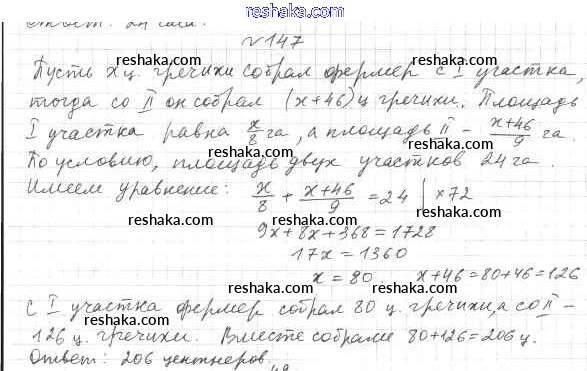 reshaka.com
Ответ: 24 часа.
№147
Пусть x ц. гречихи собрал фермер с I участка,
reshaka.com reshaka.com reshaka.com
тогда со II он собрал (x+46) ц гречихи. Площадь
I участка равна x/8 га, а площадь II - (x+46)/9 га.
reshaka.com reshaka.com reshaka.com
По условию, площадь двух участков 24 га.
Имеем уравнение: x/8 + x+46/9 = 24 | ×72
reshaka.com reshaka.com reshaka.com
9x+8x+368=1728
17x=1360
reshaka.com reshaka.com reshaka.com
x=80, x+46=80+46=126
С I участка фермер собрал 80 ц. гречихи, а со II -
reshaka.com reshaka.com reshaka.com
126 ц. гречихи. Вместе собрали 80+126=206 ц.
Ответ: 206 центнеров.
reshaka.com reshaka.com reshaka.com